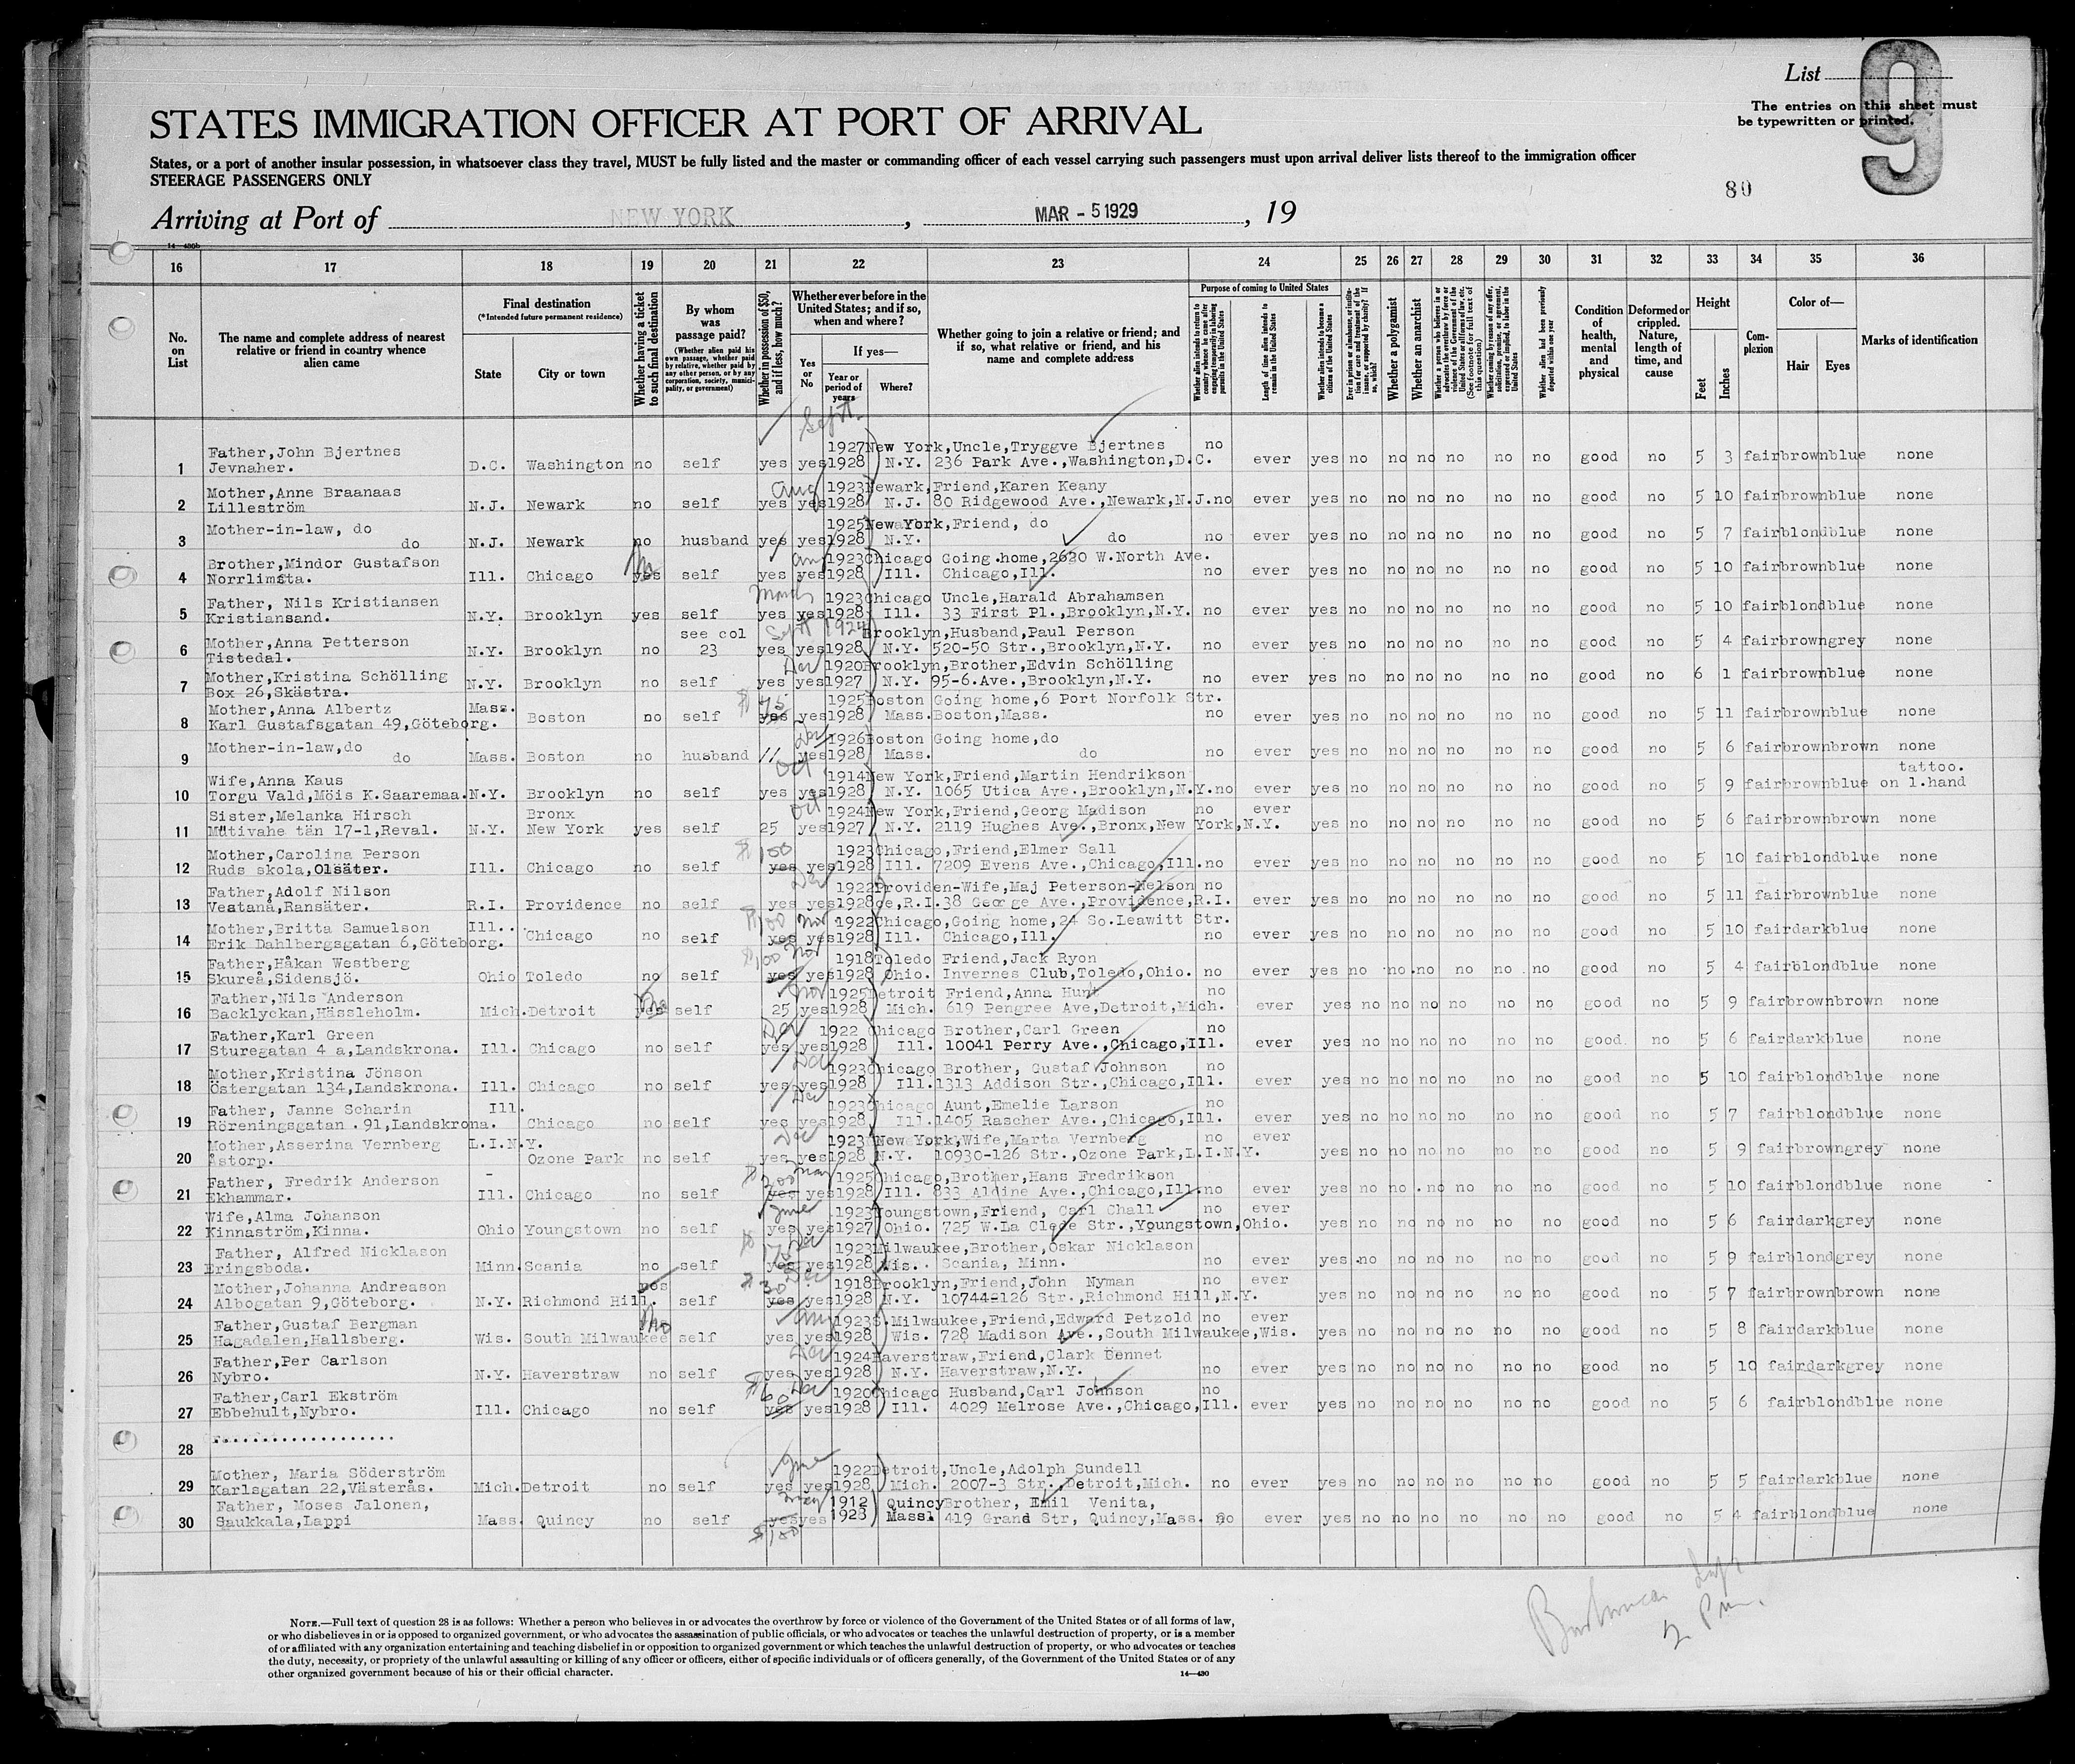 List
9
The entries on this sheet must
be typewritten or printed.
STATES IMMIGRATION OFFICER AT PORT OF ARRIVAL
States, or a port of another insular possession, in whatsoever class they travel, MUST be fully listed and the master or commanding officer of each vessel carrying such passengers must upon arrival deliver lists thereof to the immigration officer
STEERAGE PASSENGERS ONLY
80
Arriving at Port of NEW YORK, MAR - 5 1929, 19
14—430b
16 17 18 19 20 21 22 23 24 25 26 27 28 29 30 31 32 33 34 35 36
No. on List
The name and complete address of nearest relative or friend in country whence alien came
Final destination
(*Intended future permanent residence)
State
City or town
Whether having a ticket to such final destination
By whom was passage paid?
(Whether alien paid his own passage, whether paid by relative, whether paid by any other person, or by any corporation, society, municipality, or government)
Whether in possession of $50, and if less, how much?
Whether ever before in the United States; and if so, when and where?
Yes or No
If yes—
Year or period of years
Where?
Whether going to join a relative or friend; and if so, what relative or friend, and his name and complete address
Purpose of coming to United States
Length of time alien intends to remain in the United States
Whether alien intends to become a citizen of the United States
Whether a polygamist
Whether an anarchist
Condition of health, mental and physical
Deformed or crippled. Nature, length of time, and cause
Height
Feet
Inches
Complexion
Color of—
Hair
Eyes
Marks of identification
Sept.
Father,John Bjertnes 1927 New York,Uncle,Tryggve Bjertnes no
1 Jevnaher. D.C. Washington no self yes yes 1928 N.Y. 236 Park Ave.,Washington,D.C. ever yes no no no no no no good no 5 3 fair brown blue none
Aug
Mother,Anne Braanaas 1923 Newark,Friend,Karen Keany
2 Lilleström N.J. Newark no self yes yes 1928 N.J. 80 Ridgewood Ave.,Newark,N.J. no ever yes no no no no no no good no 5 10 fair brown blue none
Mother-in-law, do 1925 New York,Friend, do
3 do N.J. Newark no husband yes yes 1928 N.Y. do no ever yes no no no no no no good no 5 7 fair blond blue none
Brother,Mindor Gustafson 1923 Chicago Going home,2620 W.North Ave.
4 Norrlimsta. Ill. Chicago yes self yes yes 1928 Ill. Chicago,Ill. no ever yes no no no no no no good no 5 10 fair brown blue none
March
Father, Nils Kristiansen 1923 Chicago Uncle,Harald Abrahamsen
5 Kristiansand. N.Y. Brooklyn yes self yes yes 1928 Ill. 33 First Pl.,Brooklyn,N.Y. no ever yes no no no no no no good no 5 10 fair blond blue none
Mother,Anna Petterson see col Sept 1924 Brooklyn,Husband,Paul Person
6 Tistedal. N.Y. Brooklyn no 23 yes yes 1928 N.Y. 520-50 Str.,Brooklyn,N.Y. no ever yes no no no no no no good no 5 4 fair brown grey none
Dec
Mother,Kristina Schölling 1920 Brooklyn,Brother,Edvin Schölling
7 Box 26,Skästra. N.Y. Brooklyn no self yes yes 1927 N.Y. 95-6.Ave.,Brooklyn,N.Y. no ever yes no no no no no no good no 6 1 fair brown blue none
Mother,Anna Albertz Mass. $45 1925 Boston Going home,6 Port Norfolk Str.
8 Karl Gustafsgatan 49,Göteborg. Boston no self yes yes 1928 Mass. Boston,Mass. no ever yes no no no no no no good no 5 11 fair brown blue none
Dec
Mother-in-law,do 1926 Boston Going home,do
9 do Mass. Boston no husband // yes 1928 Mass. do no ever yes no no no no no no good no 5 6 fair brown brown none
Oct
Wife,Anna Kaus 1914 New York,Friend,Martin Hendrikson tattoo.
10 Torgu Vald,Möis K.Saaremaa. N.Y. Brooklyn no self yes yes 1928 N.Y. 1065 Utica Ave.,Brooklyn,N.Y. no ever yes no no no no no no good no 5 9 fair brown blue on l.hand
Oct
Sister,Melanka Hirsch Bronx 1924 New York,Friend,Georg Madison no ever
11 Mütivahe tän 17-1,Reval. N.Y. New York yes self 25 yes 1927 N.Y. 2119 Hughes Ave.,Bronx,New York,N.Y. yes no no no no no no good no 5 6 fair brown brown none
Mother,Carolina Person $100 1923 Chicago,Friend,Elmer Sall
12 Ruds skola,Olsäter. Ill. Chicago no self yes yes 1928 Ill. 7209 Evens Ave.,Chicago,Ill. no ever yes no no no no no no good no 5 10 fair blond blue none
Dec
Father,Adolf Nilson 1922 Providen-Wife,Maj Peterson-Nelson no
13 Vestanå,Ransäter. R.I. Providence no self yes yes 1928 ce,R.I. 38 George Ave.,Providence,R.I. ever yes no no no no no no good no 5 11 fair brown blue none
Mother,Britta Samuelson Ill. $100 Nov 1922 Chicago,Going home,24 So.Leawitt Str.
14 Erik Dahlbergsgatan 6,Göteborg. Chicago no self yes yes 1928 Ill. Chicago,Ill. no ever yes no no no no no no good no 5 10 fair dark blue none
Father,Håkan Westberg $100 Nov 1918 Toledo Friend,Jack Ryon
15 Skureå,Sidensjö. Ohio Toledo no self yes yes 1928 Ohio. Invernes Club,Toledo,Ohio. no ever yes no no no no no no good no 5 4 fair blond blue none
Nov
Father,Nils Anderson 1925 Detroit Friend,Anna Hunt no
16 Backlyckan,Hässleholm. Mich. Detroit yes self 25 yes 1928 Mich. 619 Pengree Ave,Detroit,Mich. ever yes no no no no no no good no 5 9 fair brown brown none
Father,Karl Green Dec 1922 Chicago Brother,Carl Green no
17 Sturegatan 4 a,Landskrona. Ill. Chicago no self yes yes 1928 Ill. 10041 Perry Ave.,Chicago,Ill. ever yes no no no no no no good. no 5 6 fair dark blue none
Dec
Mother,Kristina Jönson 1923 Chicago Brother, Gustaf Johnson no
18 Östergatan 134,Landskrona. Ill. Chicago no self yes yes 1928 Ill. 1313 Addison Str.,Chicago,Ill. ever yes no no no no no no good no 5 10 fair blond blue none
Dec
Father, Janne Scharin Ill. 1923 Chicago Aunt,Emelie Larson no
19 Röreningsgatan .91,Landskrona. Chicago no self yes yes 1928 Ill. 1405 Rascher Ave.,Chicago,Ill. ever yes no no no no no no good no 5 7 fair blond blue none
Mother,Asserina Vernberg L.I.N.Y. Dec 1923 New York,Wife,Marta Vernberg no ever
20 Åstorp. Ozone Park no self yes yes 1928 N.Y. 10930-126 Str.,Ozone Park,L.I.N.Y. yes no no no no no no good no 5 9 fair brown grey none
Father, Fredrik Anderson $200 May 1925 Chicago,Brother,Hans Fredrikson
21 Ekhammar. Ill. Chicago no self yes yes 1928 Ill. 833 Aldine Ave.,Chicago,Ill. no ever yes no no no no no no good no 5 10 fair blond blue none
June
Wife,Alma Johanson 1923 Youngstown,Friend, Carl Chall no ever
22 Kinnaström,Kinna. Ohio Youngstown no self yes yes 1927 Ohio. 725 W.La Clede Str.,Youngstown,Ohio. yes no no no no no no good no 5 6 fair dark grey none
Father, Alfred Nicklason Dec 1923 Milwaukee,Brother,Oskar Nicklason
23 Eringsboda. Minn. Scania no self yes yes 1928 Wis. Scania, Minn. no ever yes no no no no no no good no 5 9 fair blond grey none
Mother,Johanna Andreason yes $30 Dec 1918 Brooklyn,Friend,John Nyman no ever
24 Albogatan 9,Göteborg. N.Y. Richmond Hill. self yes yes 1928 N.Y. 10744-126 Str.,Richmond Hill,N.Y. yes no no no no no no good no 5 7 fair brown brown none
Father,Gustaf Bergman no Aug 1923 S.Milwaukee,Friend,Edward Petzold no ever
25 Hagadalen,Hallsberg. Wis. South Milwaukee self yes yes 1928 Wis. 728 Madison Ave.,South Milwaukee,Wis. yes no no no no no no good no 5 8 fair dark blue none
Dec
Father,Per Carlson 1924 Haverstraw,Friend,Clark Bennet
26 Nybro. N.Y. Haverstraw no self yes yes 1928 N.Y. Haverstraw,N.Y. no ever yes no no no no no no good no 5 10 fair dark grey none
Father,Carl Ekström $60 Dec 1920 Chicago Husband,Carl Johnson no
27 Ebbehult,Nybro. Ill. Chicago no self yes yes 1928 Ill. 4029 Melrose Ave.,Chicago,Ill. ever yes no no no no no no good no 5 6 fair blond blue none
28 ...................
June
Mother, Maria Söderström 1922 Detroit,Uncle,Adolph Sundell
29 Karlsgatan 22,Västerås. Mich. Detroit no self yes yes 1928 Mich. 2007-3 Str.,Detroit,Mich. no ever yes no no no no no no good no 5 5 fair dark blue none
Father, Moses Jalonen, May 1912 Quincy Brother, Emil Venita,
30 Saukkala,Lappi Mass. Quincy no self yes yes 1928 Mass. 419 Grand Str, Quincy,Mass. no ever yes no no no no no no good no 5 4 fair blond blue none
$100
2 Pm.
NOTE.—Full text of question 28 is as follows: Whether a person who believes in or advocates the overthrow by force or violence of the Government of the United States or of all forms of law,
or who disbelieves in or is opposed to organized government, or who advocates the assassination of public officials, or who advocates or teaches the unlawful destruction of property, or is a member
of or affiliated with any organization entertaining and teaching disbelief in or opposition to organized government or which teaches the unlawful destruction of property, or who advocates or teaches
the duty, necessity, or propriety of the unlawful assaulting or killing of any officer or officers, either of specific individuals or of officers generally, of the Government of the United States or of any
other organized government because of his or their official character.
14—430